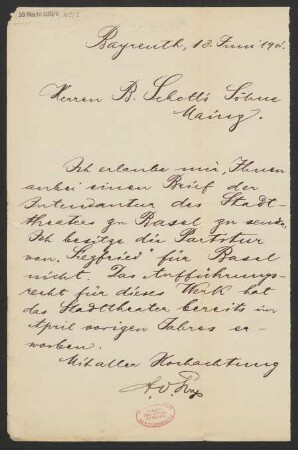 Bayreuth, 18. Juni 190
Herren B. Schott's Söhne
Mainz.
Ich erlaube mir, Ihnen
anbei einen Brief der
Intendantur des Stadt-
theaters zu Basel zu senden,
Ich besitze die Partitur
von „Siegfried" für Basel
nicht. Das Aufführungs-
recht für dieses Werk hat
das Stadttheater bereits im
April vorigen Jahres er-
worben.
Mit aller Hochachtung
A. v. Gross